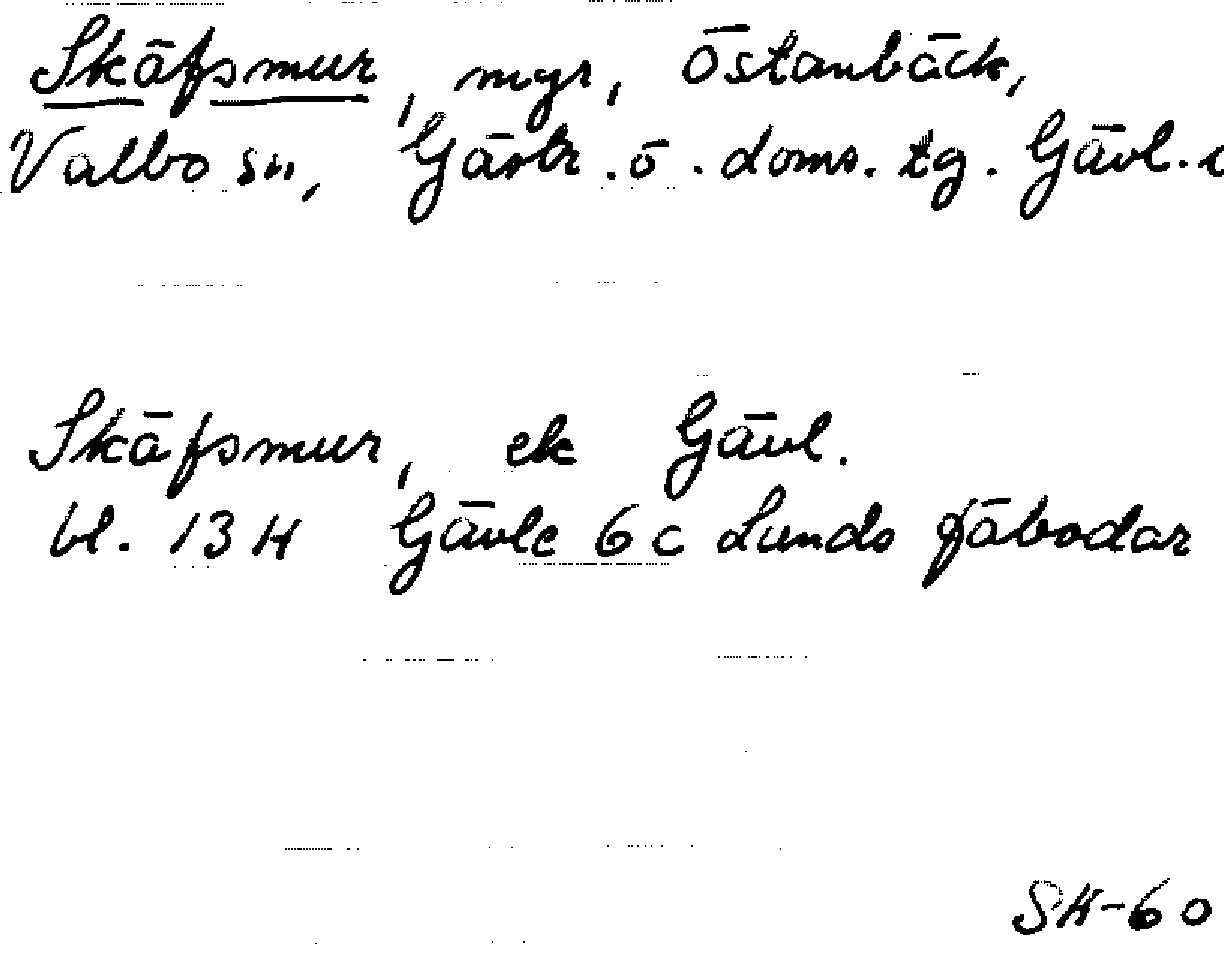 Skäfsmur, myr, Östanbäck,
Valbo sn, Gästr. ö. doms. tg. Gävl.
Skäfsmur, ek Gävl.
bl. 13 H Gävle 6 c Lunds fäbodar
SK-60